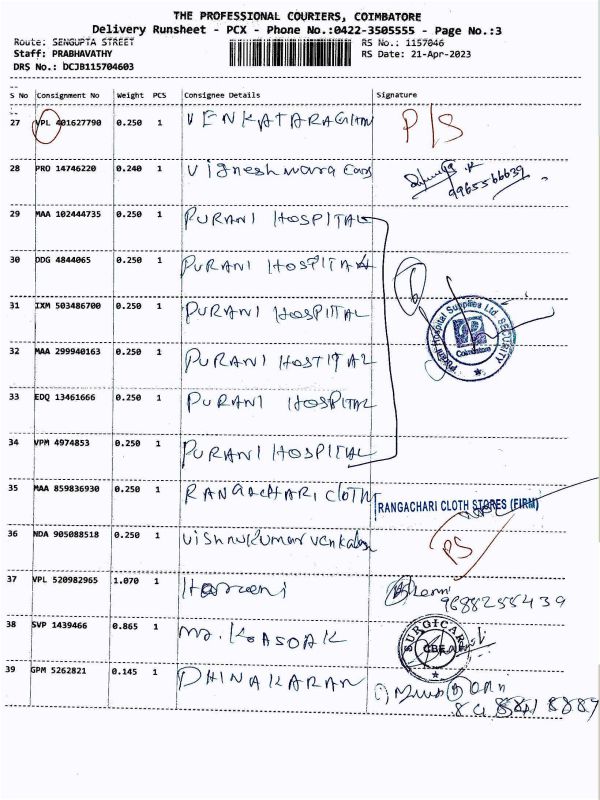 THE PROFESSIONAL COURIERS, COIMBATORE
Delivery Runsheet - PCX - Phone No.:0422-3505555 - Page No.:3
Route: SENGUPTA STREET RS No.: 1157046
Staff: PRABHAVATHY RS Date: 21-Apr-2023
DRS No.: DCJB115704603
S No Consignment No Weight PCS Consignee Details Signature
27 VPL 401627790 0.250 1 VENKATARAGHAN P/S
28 PRO 14746220 0.240 1 Vigneshwara Cars
9965566639
29 MAA 102444735 0.250 1 PURANI HOSPITAL
30 DDG 4844065 0.250 1 PURANI HOSPITAL
31 IXM 503486700 0.250 1 PURANI HOSPITAL
Purani Hospital Supplies Ltd. SECURITY
Coimbatore
32 MAA 299940163 0.250 1 PURANI HOSTITAL
33 EDQ 13461666 0.250 1 PURANI HOSPITAL
34 VPM 4974853 0.250 1 PURANI HOSPITAL
35 MAA 859836930 0.250 1 RANGACHARI CLOTH RANGACHARI CLOTH STORES (FIRM)
36 NDA 905088518 0.250 1 Vishnukumar venkatesh PS
37 VPL 520982965 1.070 1
9688255439
38 SVP 1439466 0.865 1 Mr. K. ASOAK SURGICARE CBE
39 GPM 5262821 0.145 1 DHINAKARAN